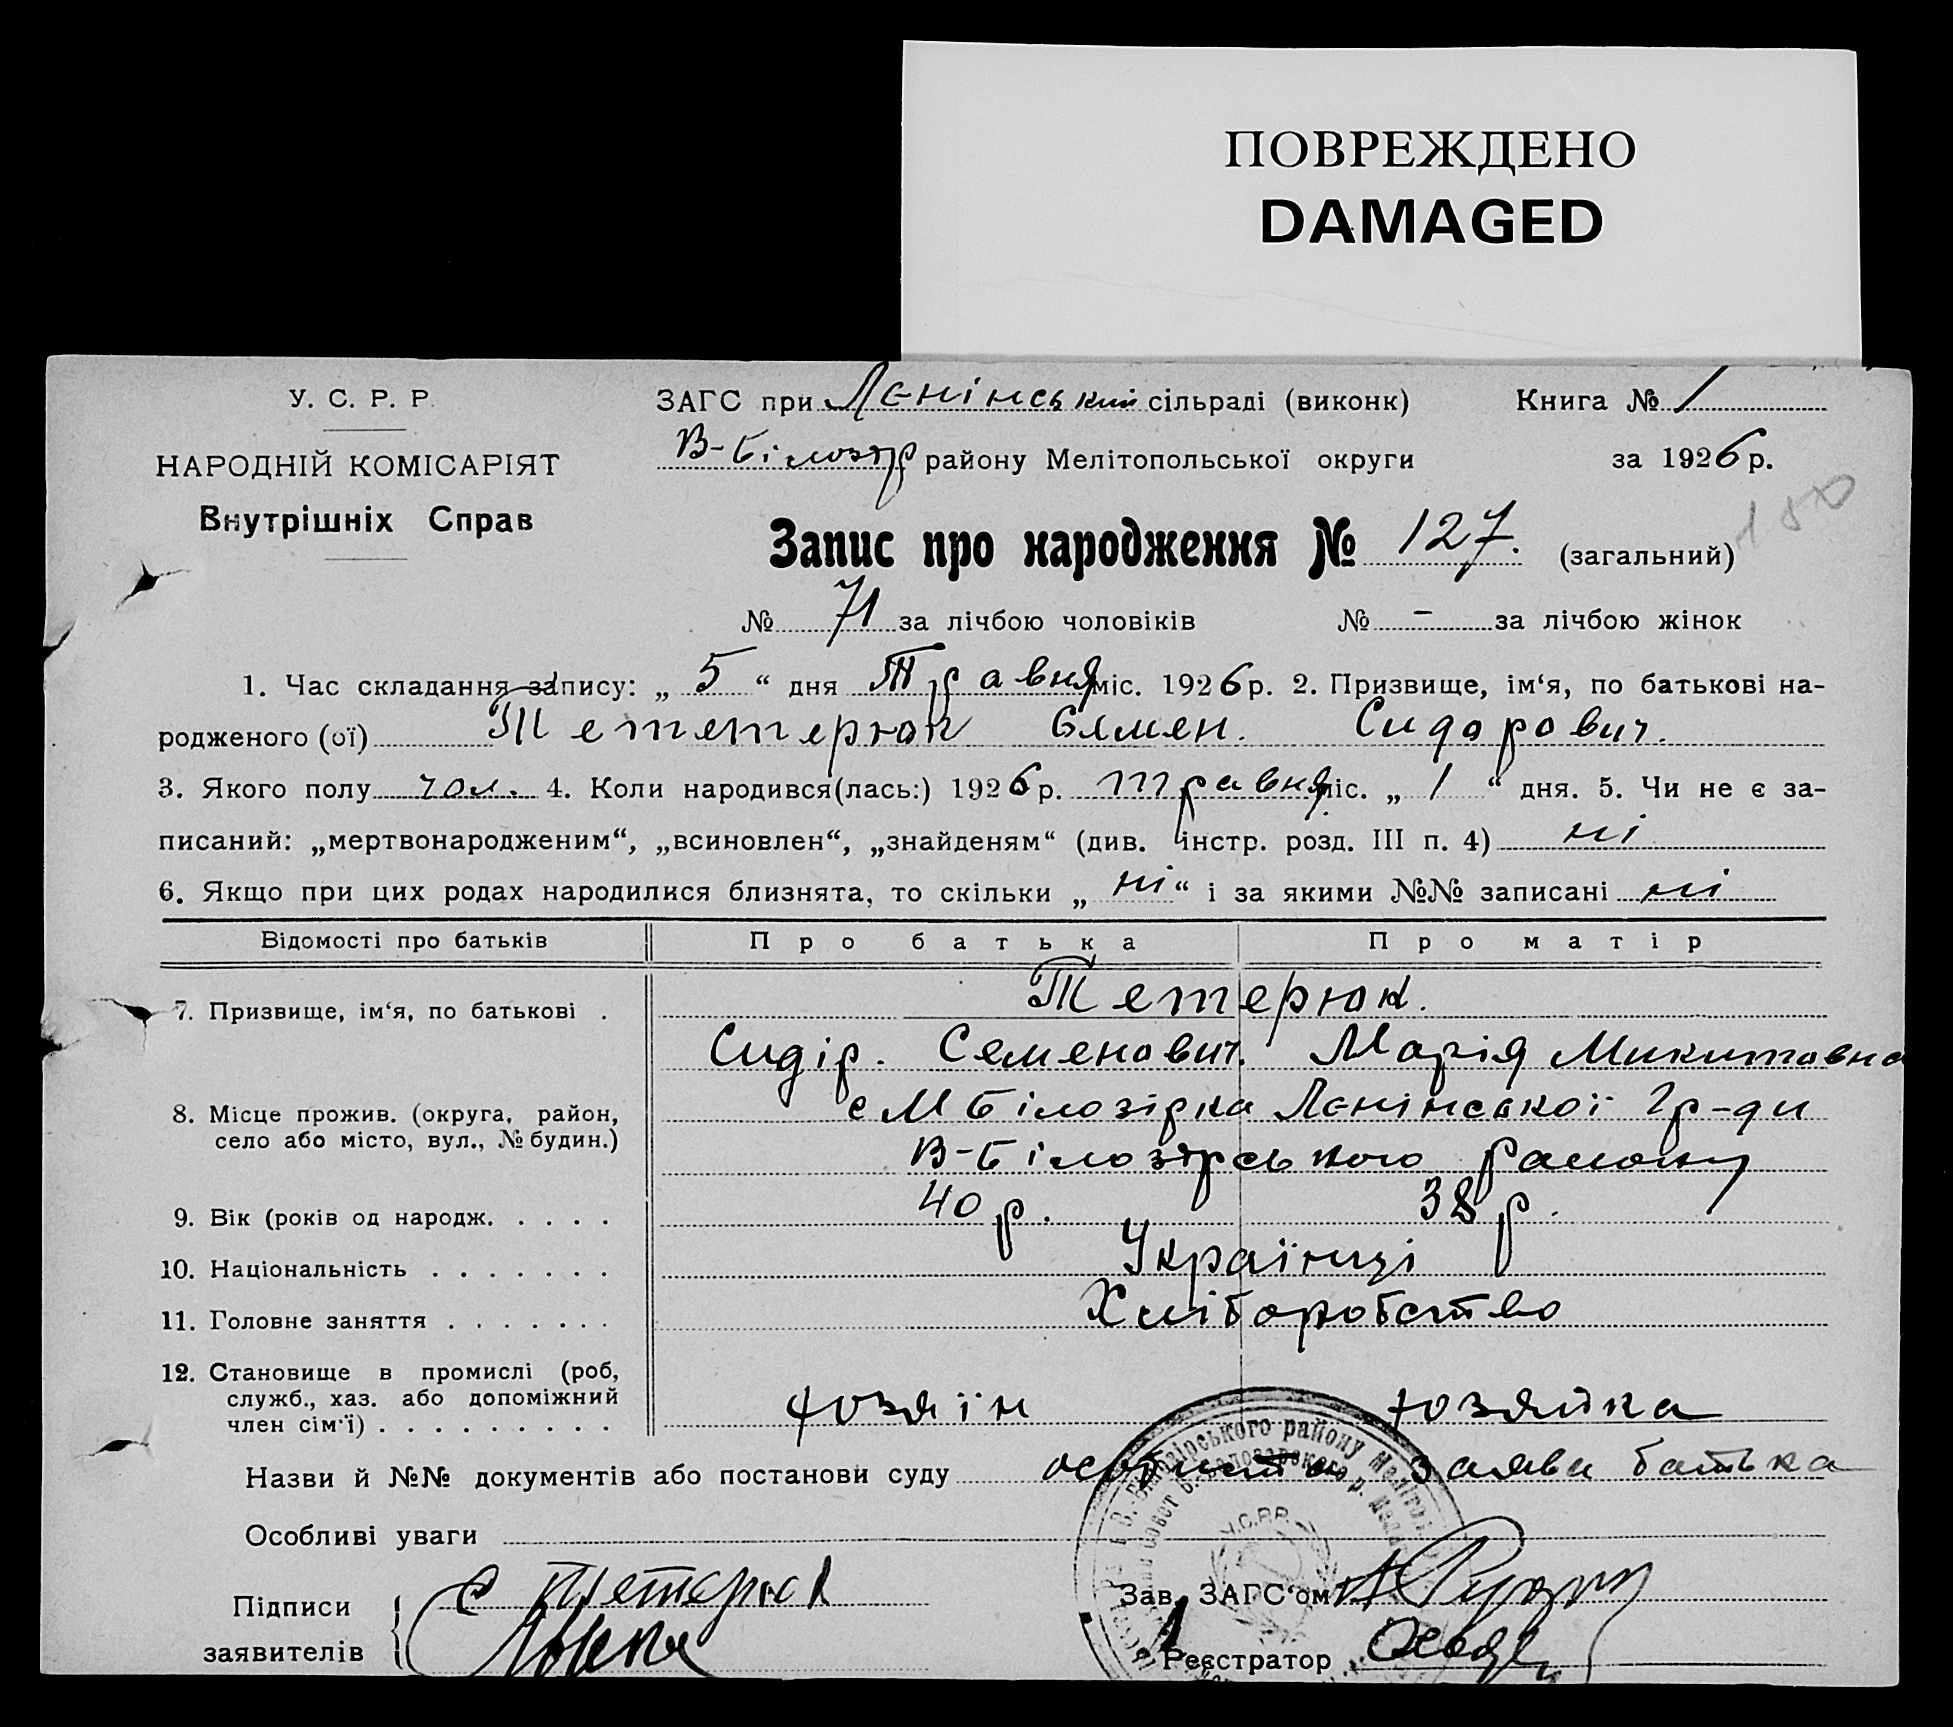 ПОВРЕЖДЕНО
DAMAGED
У. С. Р. Р.
НАРОДНІЙ КОМІСАРІЯТ
Внутрішніх Справ
ЗАГС при Ленінський сільраді (виконк)
В-Білозір району Мелітопольської округи
Книга № 1
за 1926 р.
180
Запис про народження № 127. (загальний)
№ 71 за лічбою чоловіків № - за лічбою жінок
1. Час складання запису: „ 5 “ дня Травня міс. 1926 р. 2. Призвище, ім‘я, по батькові на-
родженого (ої) Тетерюк Семен. Сидорович.
3. Якого полу чол. 4. Коли народився(лась:) 1926 р. травня міс. „ 1 “ дня. 5. Чи не є за-
писаний: „мертвонародженим“, „всиновлен“, „знайденям“ (див. інстр. розд. III п. 4) ні
6. Якщо при цих родах народилися близнята, то скільки „ ні “ і за якими №№ записані ні
Відомості про батьків Про батька Про матір
7. Призвище, ім‘я, по батькові . Тетерюк.
Сидір. Семенович. Марія Микитовна
8. Місце прожив. (округа, район,
село або місто, вул., № будин.)
с М Білозірка Ленінської гр-ди
В-Білозірського району
9. Вік (років од народж. . . . . 40 р. 38 р.
10. Національність . . . . . . . Українці
11. Головне заняття . . . . . . . Хліборобство
12. Становище в промислі (роб,
служб., хаз. або допоміжний
член сім‘ї) . . . . . . . . . хозяїн хозяйка
Назви й №№ документів або постанови суду особиста заява батька
Особливі уваги
У.С.Р.Р.
Підписи
заявителів
С Тетерюк
Зав. ЗАГС‘ом
Реєстратор